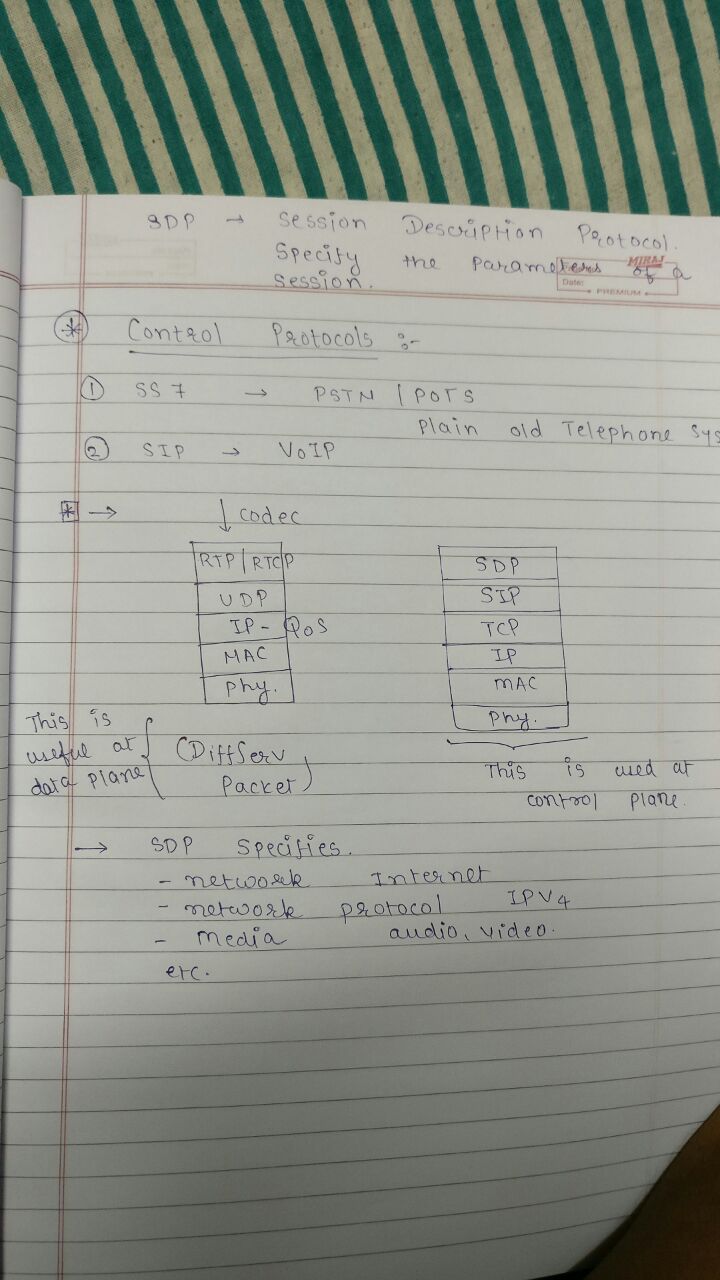 SDP → Session Description Protocol.
Specify the parameters of a
session.
MIRAJ
Date:
PREMIUM
* Control Protocols :-
① SS7 → PSTN / POTS
Plain old Telephone Sys
② SIP → VoIP
* →
↓ codec
RTP/RTCP
UDP
IP - QoS
MAC
Phy.
SDP
SIP
TCP
IP
MAC
Phy.
This is
useful at
data plane
(DiffServ
Packet)
This is used at
control plane.
→ SDP specifies.
- network Internet
- network protocol IPV4
- media audio, video.
etc.